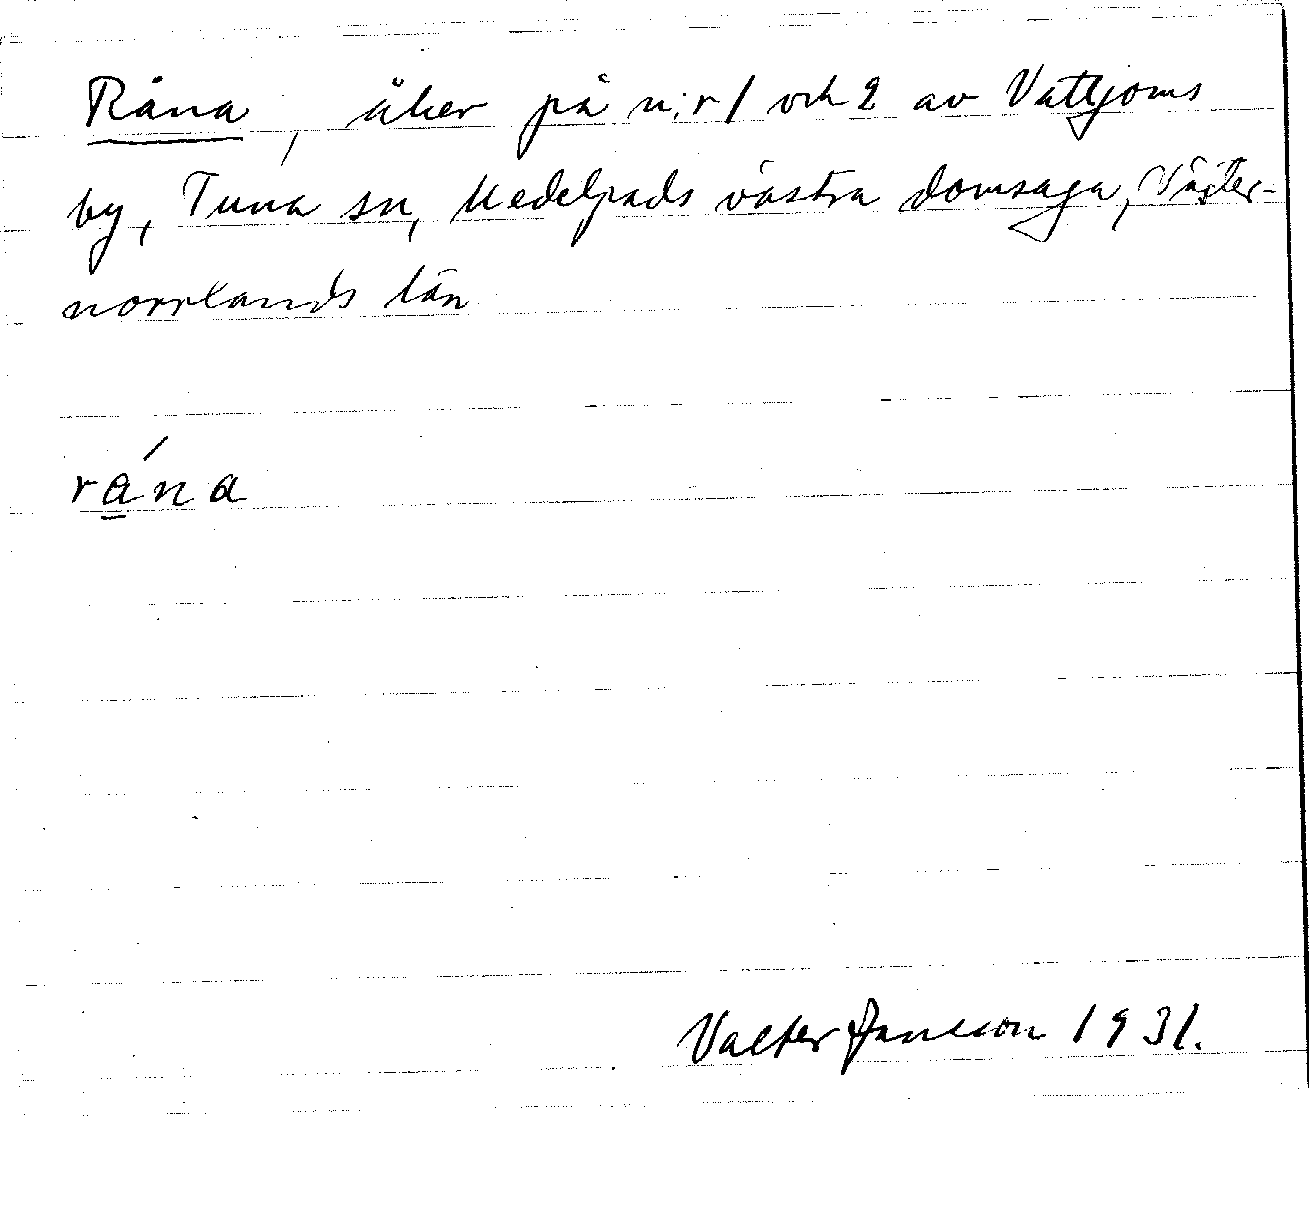 Råna, åker på n:r 1 och 2 av Vattjoms
by, Tuna sn, Medelpads västra domsaga, Väster-
norrlands län
rána
Valter Jansson 1931.